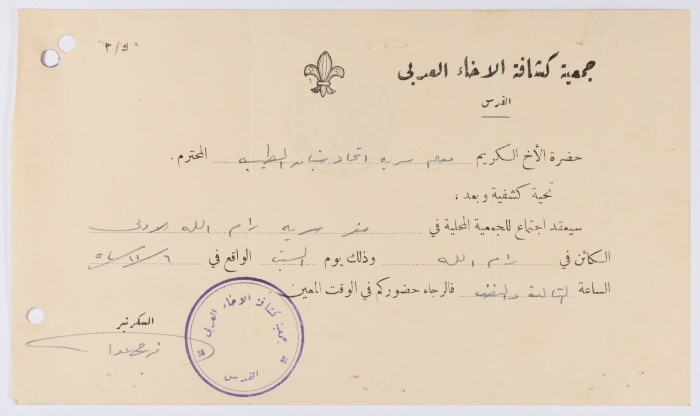 ٣/٥٠
جمعية كشافة الاخاء العربي
القدس
حضرة الأخ الكريم معلم سرية اتحاد شبان الطيبه المحترم.
تحية كشفية وبعد،
سيعقد اجتماع للجمعية المحلية في مقر سرية رام الله الاولى
الكائن في رام الله وذلك يوم السبت الواقع في ٦/١١/
الساعة الثالثة والنصف فالرجاء حضوركم في الوقت المعين
السكرتير
جمعية كشافة الاخاء العربي
القدس